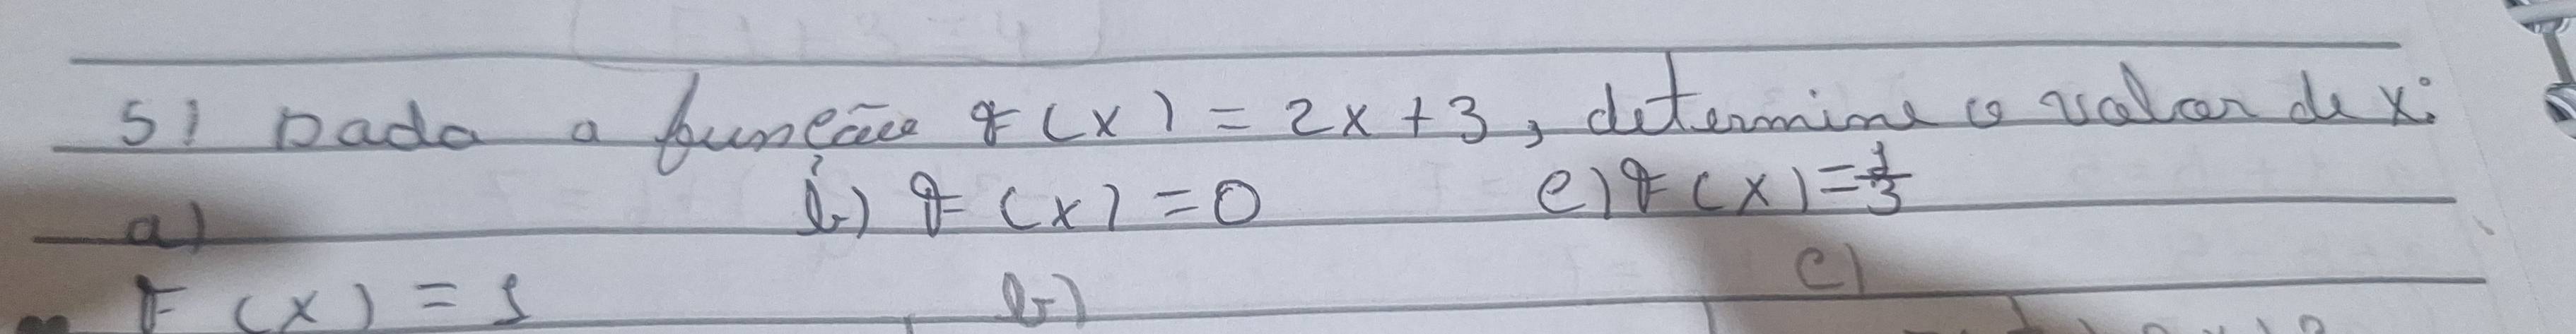 5) Dada a função f(x) = 2x + 3, determine o valor de x:
a) b) f(x) = 0 c) f(x) = 1/3
F(x) = 1 b) c)